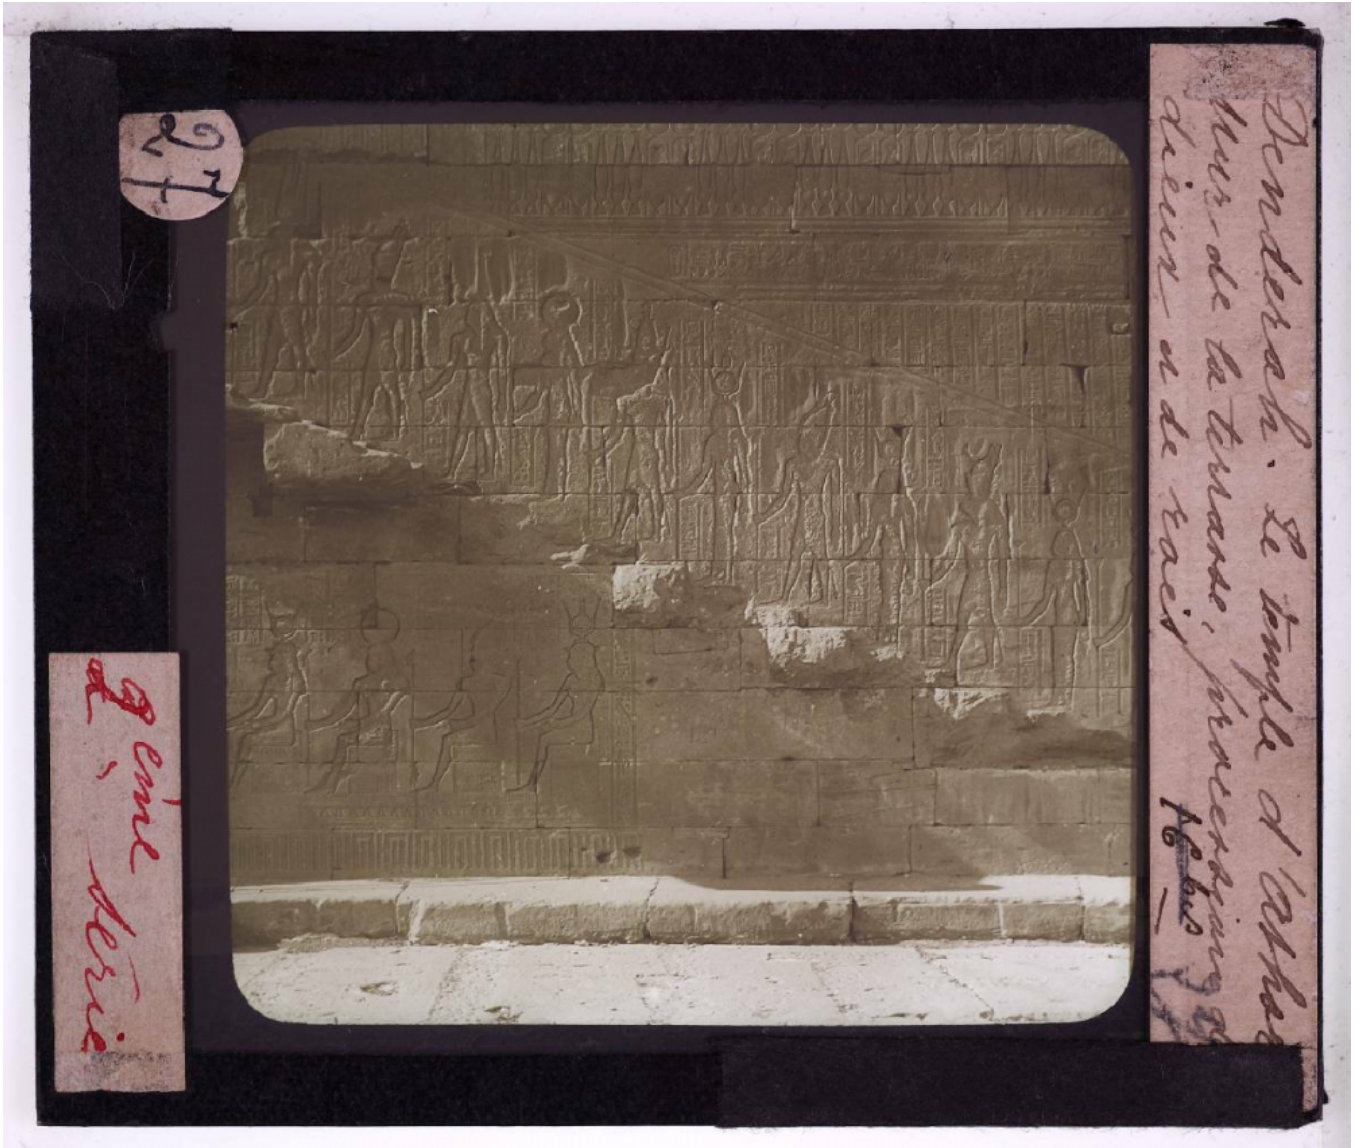 Denderah. Le temple d'athor
Mur de la terrasse, processions de
dieux et de rois
16 bis
27
2 eme série